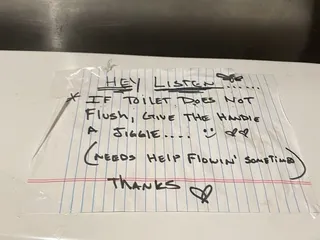 HEY LISTEN......
* IF TOILET DOES NOT
FLUSH, GIVE THE HANDLE
A JIGGLE.... 
(NEEDS HELP FLOWIN' SOMETIMES)
THANKS